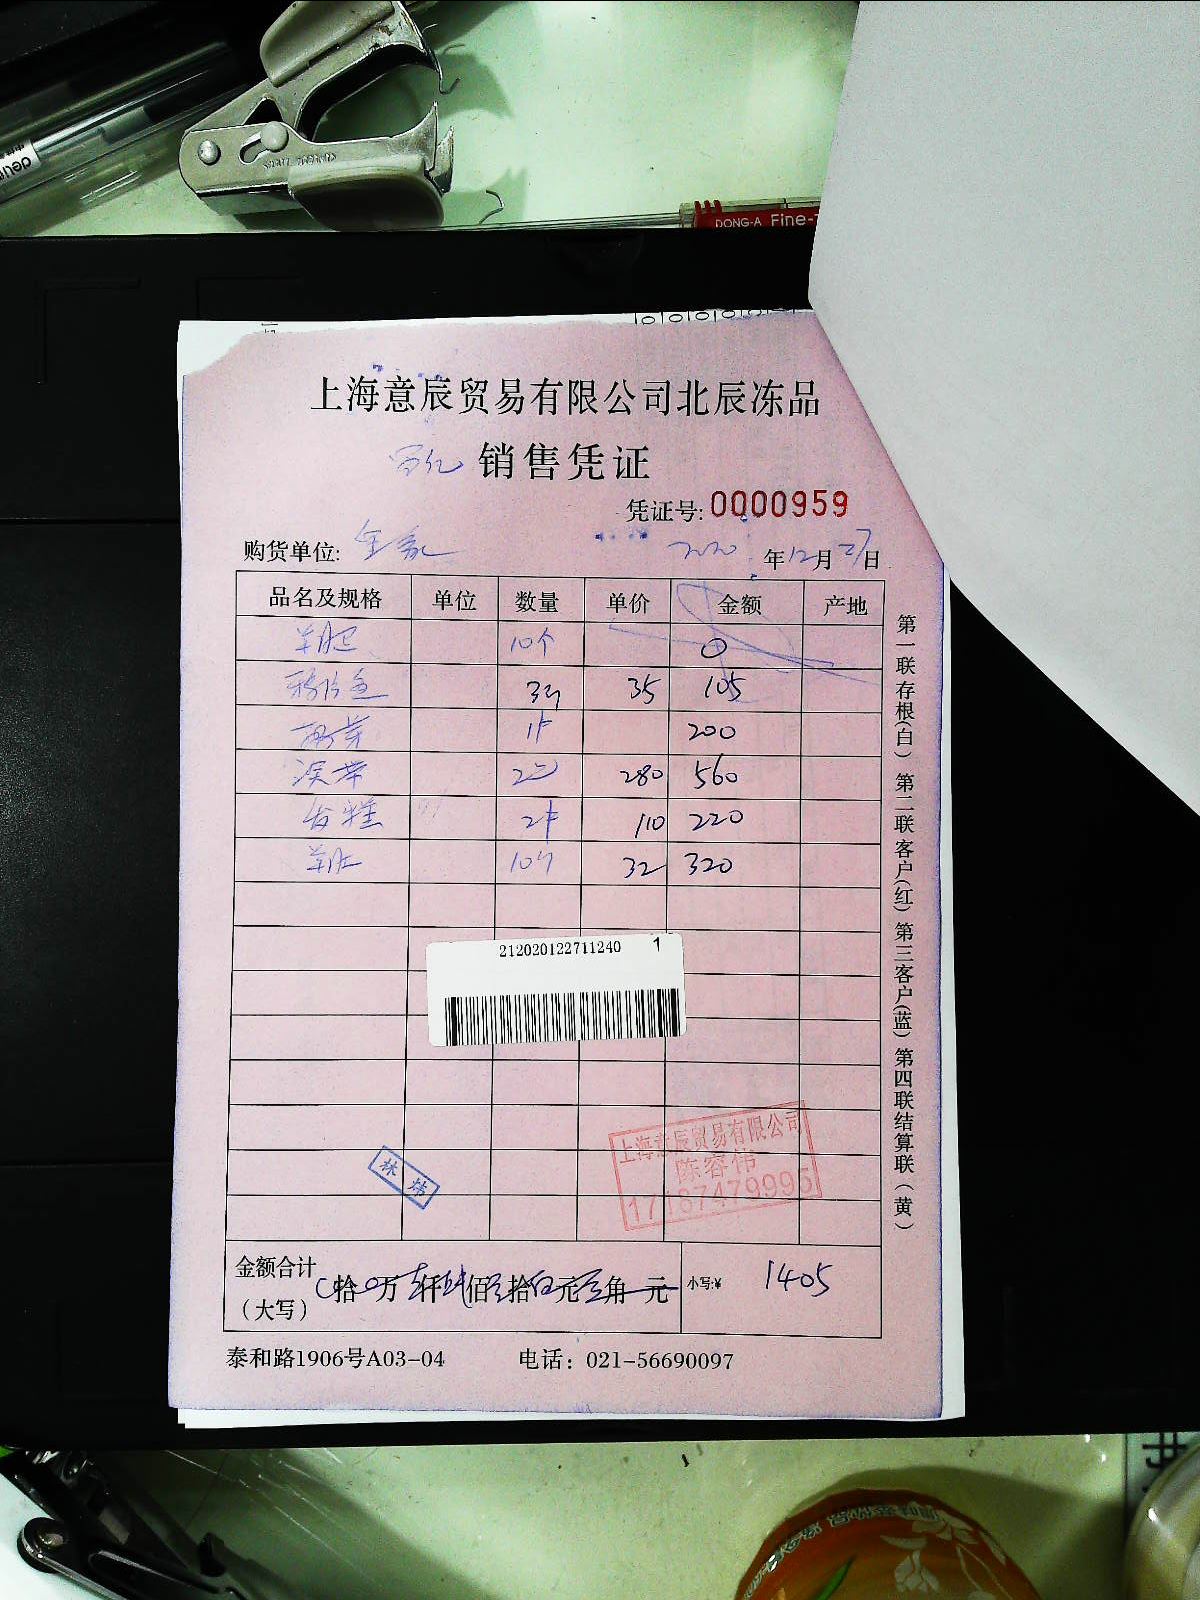 deli
DONG-A Fine-T
上海意辰贸易有限公司北辰冻品
销售凭证
凭证号: 0000959
购货单位:
2020年12月27日
品名及规格 单位 数量 单价 金额 产地
10个 0
35 105
200
280 560
110 220
10个 32 320
212020122711240 1
上海意辰贸易有限公司
陈睿伟
17187479995
林炜
金额合计
(大写)
拾 万 仟 佰 拾 元 角 元
小写:¥ 1405
泰和路1906号A03-04 电话: 021-56690097
第一联存根(白) 第二联客户(红) 第三客户(蓝) 第四联结算联(黄)